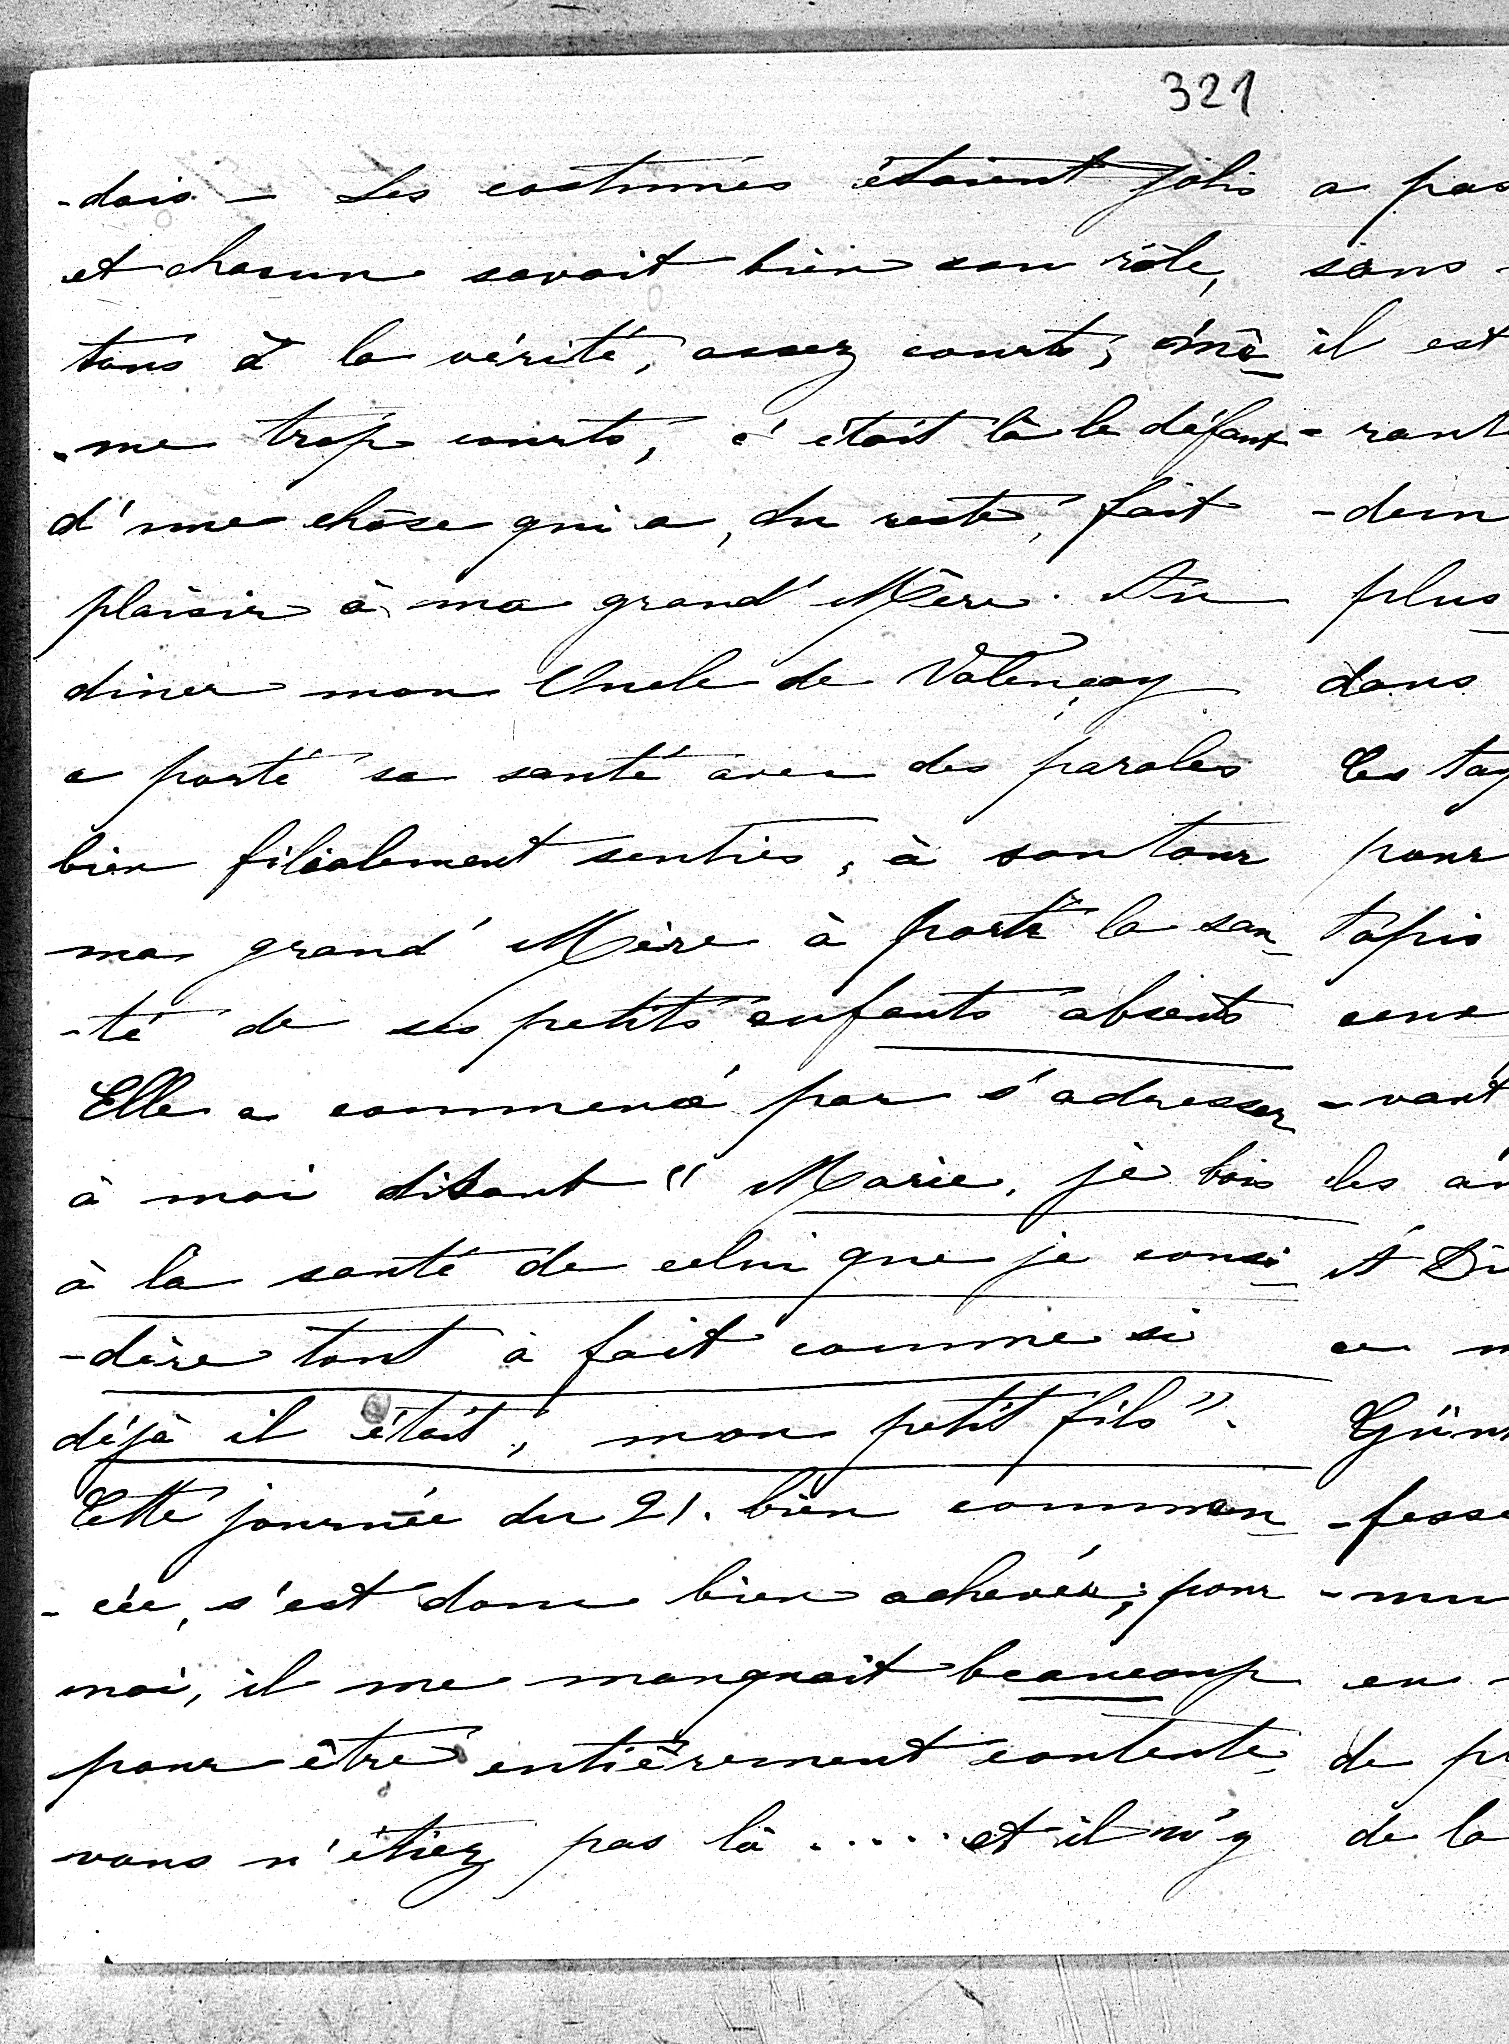 321
-dais - Les costumes étaient jolis
et chacun savait bien son rôle,
tous à la vérité, assez courts, mê-
-me trop courts, c'était là le défaut
d'une chose qui a, du reste, fait
plaisir à ma grand'Mère. Au
diner mon Oncle de Valençay
a porté sa santé avec des paroles
bien filialement senties, à son tour
ma grand'Mère à porté la san-
-té de ses petits enfants absents
Elle a commencé par s'adresser
à moi disant " Marie, je bois
à la santé de celui que je consi-
-dère tout à fait comme si
déjà il était, mon petit fils".
Cette journée du 21. bien commen-
-cée, s'est donc bien achevée; pour
moi, il me manquait beaucoup
pour être entièrement contente,
vous n'étiez pas là ..... et il n'y
a pas
sans -
il est
- rant
- dem
plus
dans
les tap
pour
tapis
ceux
- vant
les
et Di
ce
Gün
- fesse
- mu
en -
de pr
de la